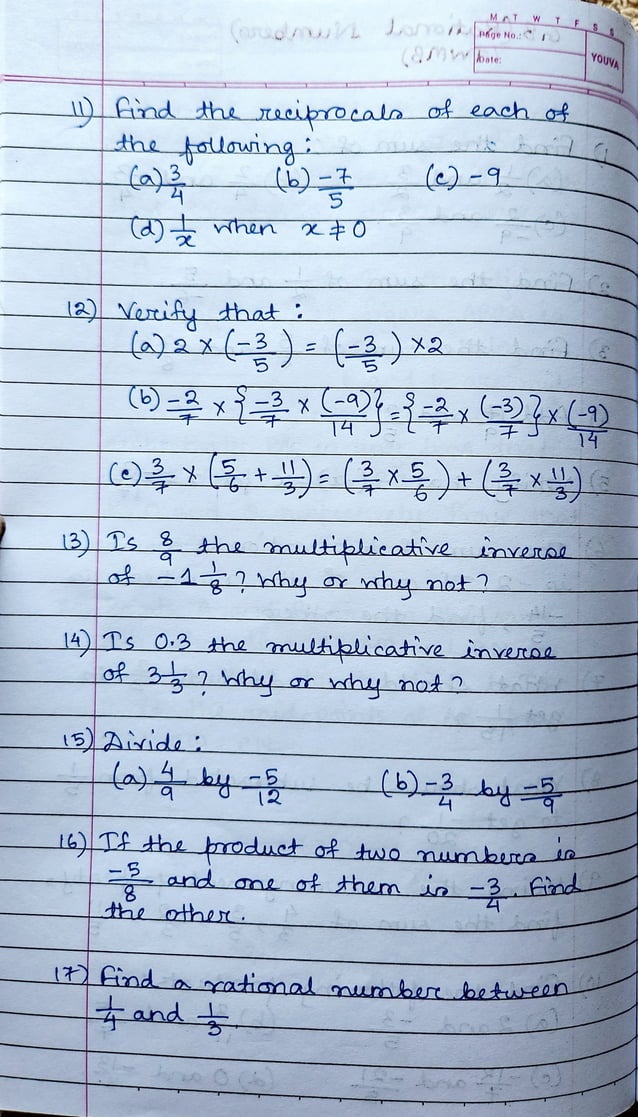 M T W T F S S
Page No.:
Date:
YOUVA
11) Find the reciprocals of each of
the following:
(a) 3/4 (b) -7/5 (c) -9
(d) 1/x when x ≠ 0
12) Verify that :
(a) 2 × (-3/5) = (-3/5) × 2
(b) -2/7 × {-3/7 × (-9)/14} = {-2/7 × (-3)/7} × (-9)/14
(c) 3/7 × (5/6 + 11/3) = (3/7 × 5/6) + (3/7 × 11/3)
13) Is 8/9 the multiplicative inverse
of -1 1/8 ? Why or why not ?
14) Is 0.3 the multiplicative inverse
of 3 1/3 ? Why or why not ?
15) Divide :
(a) 4/9 by -5/12 (b) -3/4 by -5/9
16) If the product of two numbers is
-5/8 and one of them is -3/4. Find
the other.
17) Find a rational number between
1/4 and 1/3.